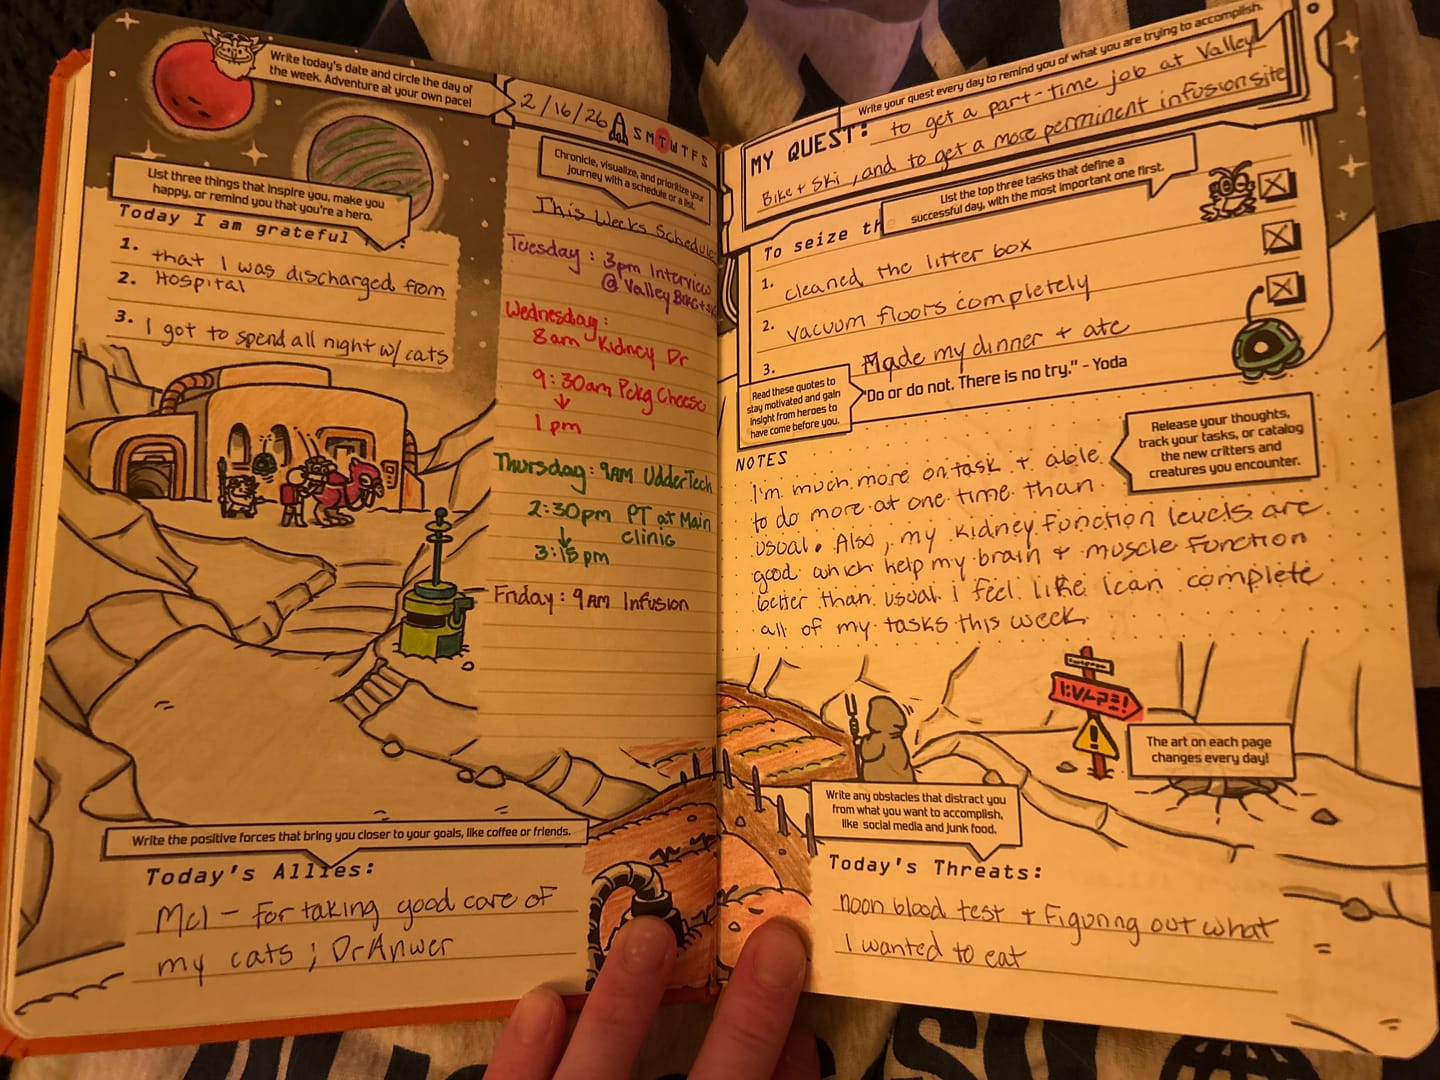 Write today's date and circle the day of
the week. Adventure at your own pace!
2/16/26 S M T W T F S
List three things that inspire you, make you
happy, or remind you that you're a hero.
Today I am grateful
1. that I was discharged from
2. Hospital
3. I got to spend all night w/ cats
Chronicle, visualize, and prioritize your
journey with a schedule or a list.
This Weeks Schedule
Tuesday : 3pm Interview
@ Valley Bike + ski
Wednesday:
8am Kidney Dr
9:30am Pckg Cheese
1pm
Thursday: 9AM UdderTech
2:30pm PT at Main
clinic
3:15pm
Friday: 9AM Infusion
Write the positive forces that bring you closer to your goals, like coffee or friends.
Today's Allies:
Mcl - For taking good care of
my cats ; Dr Anwer
Write your quest every day to remind you of what you are trying to accomplish.
MY QUEST: to get a part-time job at Valley
Bike + Ski , and to get a more perminent infusion site
List the top three tasks that define a
successful day, with the most important one first.
To seize th
1. cleaned the litter box
2. vacuum floors completely
3. Made my dinner + ate
Read these quotes to
stay motivated and gain
insight from heroes to
have come before you.
"Do or do not. There is no try." - Yoda
Release your thoughts,
track your tasks, or catalog
the new critters and
creatures you encounter.
NOTES
I'm much more on task + able
to do more at one time than
usual. Also, my kidney function levels are
good which help my brain + muscle function
better than usual. I feel like I can complete
all of my tasks this week.
The art on each page
changes every day!
Write any obstacles that distract you
from what you want to accomplish,
like social media and junk food.
Today's Threats:
noon blood test + figuring out what
I wanted to eat